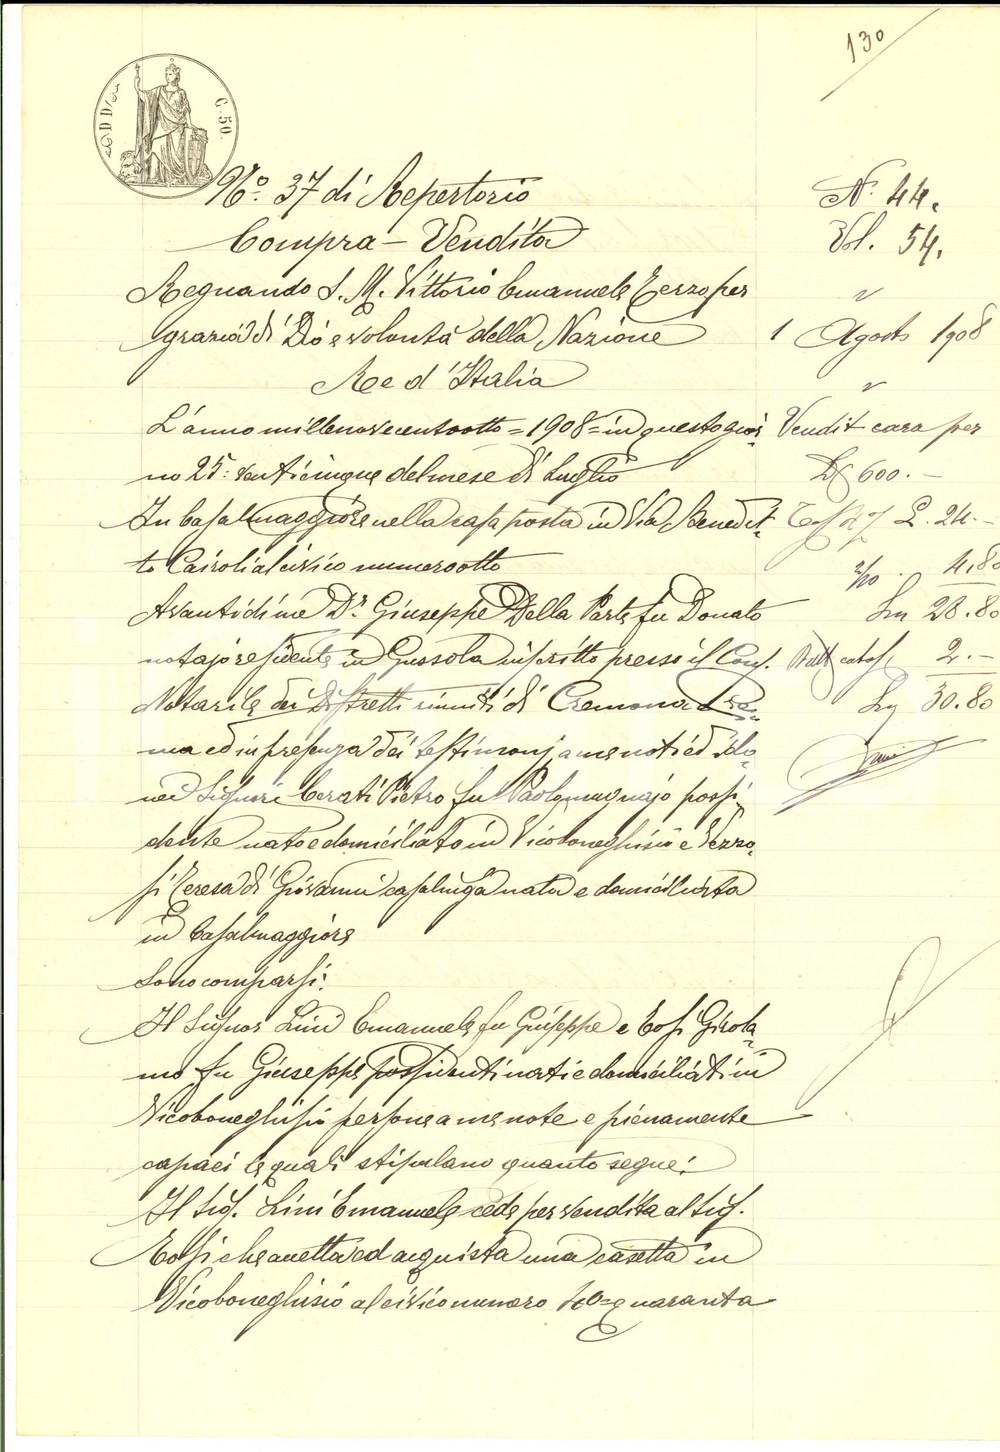 130
C. 50.
N.° 37 di Repertorio
Compra - Vendita
Regnando S. M. Vittorio Emanuele Terzo per
grazia di Dio e volontà della Nazione
Re d'Italia
L'anno millenovecentootto = 1908 = in questo gior=
no 25: venticinque del mese di Luglio
In Casalmaggiore nella casa posta in Via Benedet=
to Cairoli al civico numero otto
Avanti di me Dr. Giuseppe Della Parte fu Donato
notajo residente in Gussola inscritto presso il Cons.
Notarile dei Distretti riuniti di Cremona Cre=
ma ed in presenza dei testimonj a me noti ed ido=
nei Signori Cerati Pietro fu Paolo mugnajo possi=
dente nato e domiciliato in Vicoboneghisio e Vezzo=
si Teresa di Giovanni casalinga nata e domiciliata
in Casalmaggiore
Sono comparsi:
Il Signor Lini Emanuele fu Giuseppe e Tosi Girola=
mo fu Giuseppe possidenti nati e domiciliati in
Vicoboneghisio persone a me note e pienamente
capaci le quali stipulano quanto segue:
Il Sig. Lini Emanuele cede per vendita al Sig.
Tosi che accetta ed acquista una casetta in
Vicoboneghisio al civico numero 40 = quaranta
N. 44.
Vol. 54.
"
1 Agosto 1908
"
Vendit casa per
L 600. -
L. 24. -
2/10 . 4.80
28.80
2. -
30.80